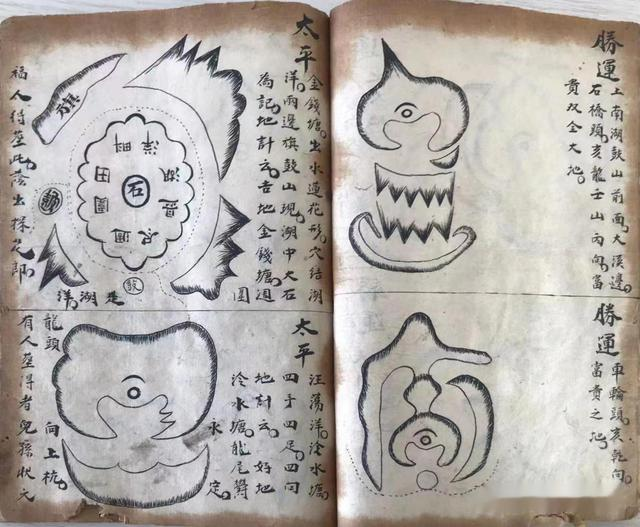 勝運
上南湖鼓山前面大溪邊
石橋頭亥龍壬山丙向富
貴双全大地
勝運
車輪頭亥乾向
富貴之地
太平
金錢塘出水蓮花形穴結湖
洋兩邊旗鼓山現湖中大石
為記地計云吉地金錢塘迴
圓
湖洋
福人得塟此蔭出探花郎
旗
石
湖
洋
田
圓
迴
太平
汪蕩洋冷水塘
四手四足四向
地計云好地
冷水塘龍尾彎
永定
龍頭向上杭
有人塟得者兒孫狀元